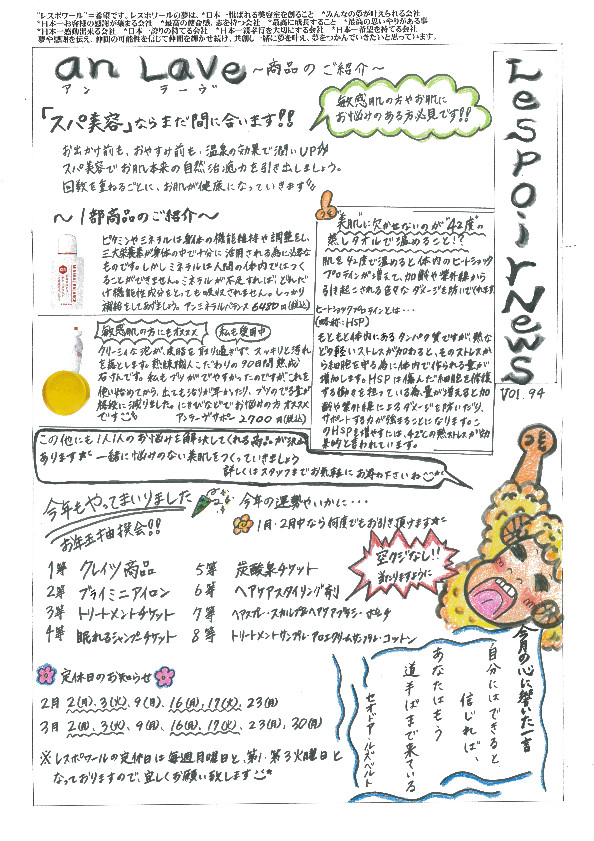 "レスポワール"=希望です。レスポワールの夢は、*日本一選ばれる美容室を創ること *みんなの夢が叶えられる会社
*日本一お客様の感謝が集まる会社 *最高の使命感、志を持つ会社 *最高に成長すること *最高の思いやりがある事
*日本一感動出来る会社 *日本一誇りの持てる会社 *日本一親孝行を大切にする会社 *日本一希望を持てる会社
夢や感謝を伝え、仲間の可能性を信じて仲間を輝かせ続け、共創し一緒に夢を叶え、夢をつかんでいきたいと思っています。
an Lave ~商品のご紹介~
アン ラーヴ
敏感肌の方やお肌に
お悩みのある方必見です!!
「スパ美容」ならまだ間に合います!!
お出かけ前も、おやすみ前も、温泉の効果で潤いUP
スパ美容でお肌本来の自然治癒力を引き出しましょう。
回数を重ねるごとに、お肌が健康になっていきます
~1部商品のご紹介~
ビタミンやミネラルは身体の機能維持や調整をし、
三大栄養素が身体の中で十分に活用される為に必要な
ものです。しかしミネラルは人間の体内でつくる
ことができません。ミネラルが不足すれば、どれだ
け機能性成分をとっても吸収されません。しっかり
補給をしてあげましょう。アンミネラルバランス 6480円(税込)
敏感肌の方にもオススメ
私も愛用中
クリーミィな泡が、皮脂を取り過ぎず、スッキリと汚れ
を落とします。熟練職人こだわりの90日間熟成
石けんです。私もブツができやすかったのですがこれを
使い始めてから、出ても治りが早かったり、ブツのできる量が
格段に減りました。にきびなどでお悩みの方オススメ
です アンラーヴサボン 2700円(税込)
美肌に欠かせないのが"42度"の
蒸しタオルで温めること!?
肌を42度で温めると体内のヒートショック
プロテインが増えて、加齢や紫外線から
引き起こされる色々なダメージを防いでくれます
ヒートショックプロテインとは…
(略称:HSP)
もともと体内にあるタンパク質ですが、熱な
どの軽いストレスが加わると、そのストレスか
ら細胞を守る為に体内で作られる量が
増加します。HSPは傷んだ細胞を修復
する働きを担っている為、量が増えると加
齢や紫外線によるダメージを防いだり、
サポートする力が強まることになります。こ
のHSPを増やすには、42℃の熱ストレスが効
果的と言われています。
この他にも1人1人のお悩みを解決してくれる商品が沢山
あります 一緒に悩みのない素肌をつくっていきましょう
詳しくはスタッフまでお気軽にお尋ね下さいね
LespoirNews
Vol. 94
今年もやってまいりました
お年玉抽撰会!!
今年の運勢やいかに・・・
1月・2月中なら何度でもお引き頂けます
空クジなし!!
当たりますように
1等 クレイツ商品
2等 プライミニアイロン
3等 トリートメントチケット
4等 眠れるシャンプーチケット
5等 炭酸泉チケット
6等 ヘアケアスタイリング剤
7等 ヘアスプレー・スカルプ&ヘアケアブラシ・ポーチ
8等 トリートメントサンプル・アロエクリームサンプル・コットン
定休日のお知らせ
2月 2(月)、3(火)、9(月)、16(月)、17(火)、23(月)
3月 2(月)、3(火)、9(月)、16(月)、17(火)、23(月)、30(月)
※レスポワールの定休日は毎週月曜日と、第1・第3火曜日と
なっておりますので、宜しくお願い致します
今月の心に響いた一言
自分にはできると
信じれば、
あなたはもう
道半ばまで来ている
セオドア・ルーズベルト